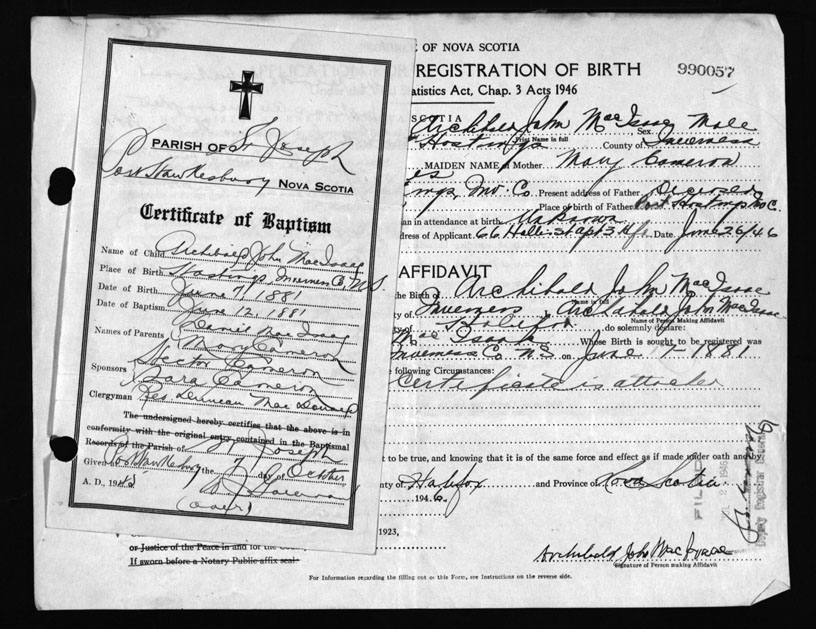 PARISH OF St Joseph
Port Hawkesbury NOVA SCOTIA
Certificate of Baptism
Name of Child Archibald John MacIsaac
Place of Birth Hastings, Inverness Co. N.S.
Date of Birth June 7, 1881
Date of Baptism June 12, 1881
Names of Parents Daniel MacIsaac
Mary Cameron
Sponsors Hector Cameron
Sara Cameron
Clergyman Rev Duncan MacDonald
The undersigned hereby certifies that the above is in
conformity with the original entry contained in the Baptismal
Records of the Parish of St. Joseph
Given Port Hawkesbury the 7 day of October
A. D., 194
(over)
E OF NOVA SCOTIA
REGISTRATION OF BIRTH
990057
tatistics Act, Chap. 3 Acts 1946
SCOTIA
Archibald John MacIsaac Sex Male
Print Name in full
Hastings County of Inverness
MAIDEN NAME of Mother Mary Cameron
ings, Inv. Co. Present address of Father Deceased
Place of birth of Father Port Hastings Inv C.
an in attendance at birth Unknown
dress of Applicant 66 Hollis St apt 3 Hfx Date June 26/46
AFFIDAVIT
the Birth of Archibald John MacIsaac
Name in full
y of Inverness Archibald John MacIsaac
Name of Person Making Affidavit
y of Halifax do solemnly declare:
MacIsaac Whose Birth is sought to be registered was
Inverness Co N.S. on June 7-1881
following Circumstances:
Certificate is attached
t to be true, and knowing that it is of the same force and effect as if made under oath and by
nty of Halifax and Province of Nova Scotia
1946
1923,
or Justice of the Peace in and for the
If sworn before a Notary Public affix seal
Archibald John MacIsaac
Signature of Person making Affidavit
FILED
Deputy Registrar General
For Information regarding the filling out of this Form, see Instructions on the reverse side.